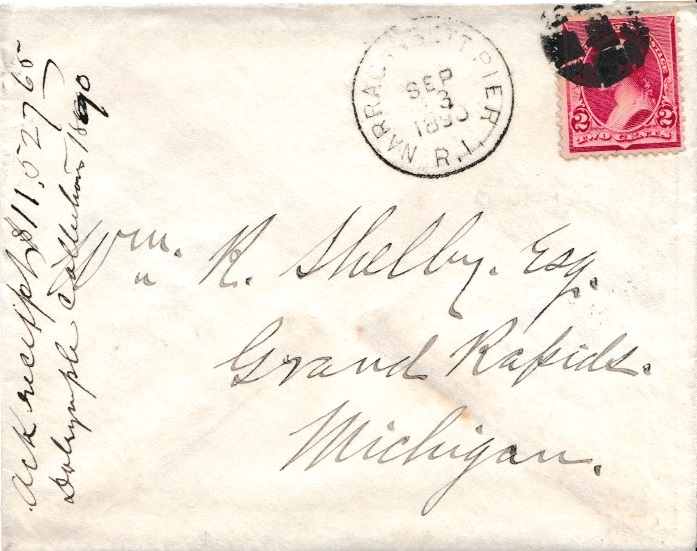 NARRAGANSETT PIER
SEP
3
1890
R.I.
2 2
TWO CENTS
Wm. R. Shelby. Esq.
Grand Rapids.
Michigan.
Ack receipt $11,527 65
Dalrymple Collections 1890